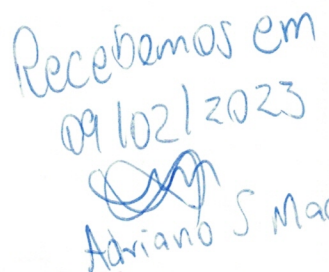 Recebemos em
09/02/2023
Adriano S